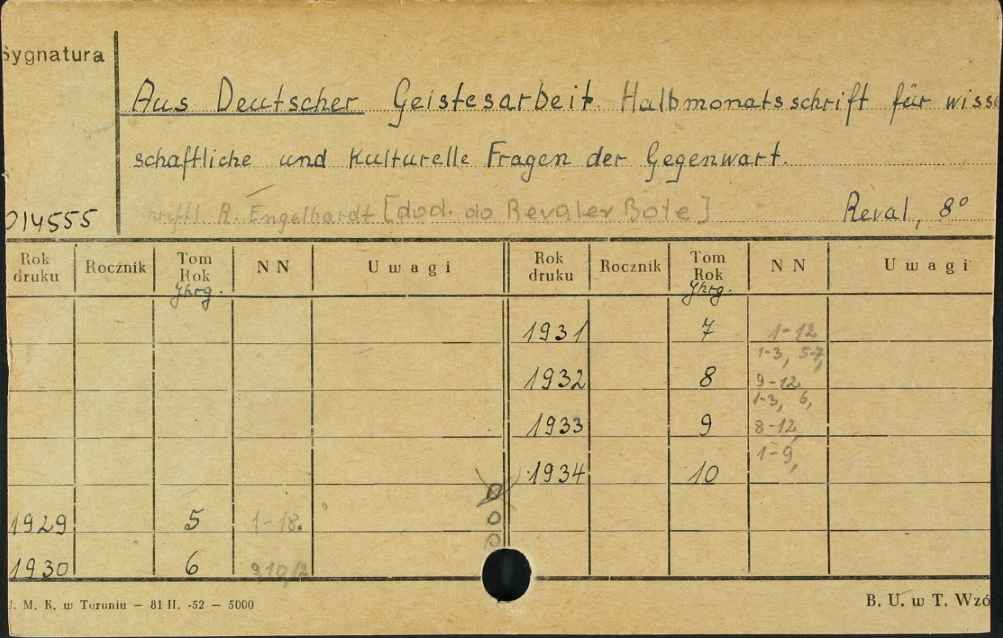 Sygnatura
Aus Deutscher Geistesarbeit. Halbmonatsschrift für wiss
schaftliche und kulturelle Fragen der Gegenwart.
014555 R. Engelhardt [dod. do Revaler Bote] Reval, 8°
Rok druku Rocznik Tom Rok Jhrg. NN Uwagi Rok druku Rocznik Tom Rok Jhrg. NN Uwagi
1931 7 1-12
1932 8 1-3, 5-7, 9-12,
1933 9 1-3, 6, 8-12,
1934 10 1-9,
1929 5 1-18.
1930 6
U. M. K. w Toruniu — 81 II. -52 — 5000 B. U. w T. Wzó